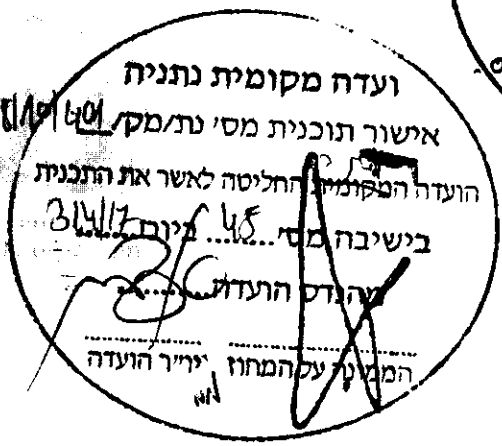 ועדה מקומית נתניה
אישור תוכנית מס' נת/מק/
הועדה המקומית החליטה לאשר את התכנית
בישיבה מס' 45 ביום
מהנדס הועדה
הממונה על המחוז יו"ר הועדה